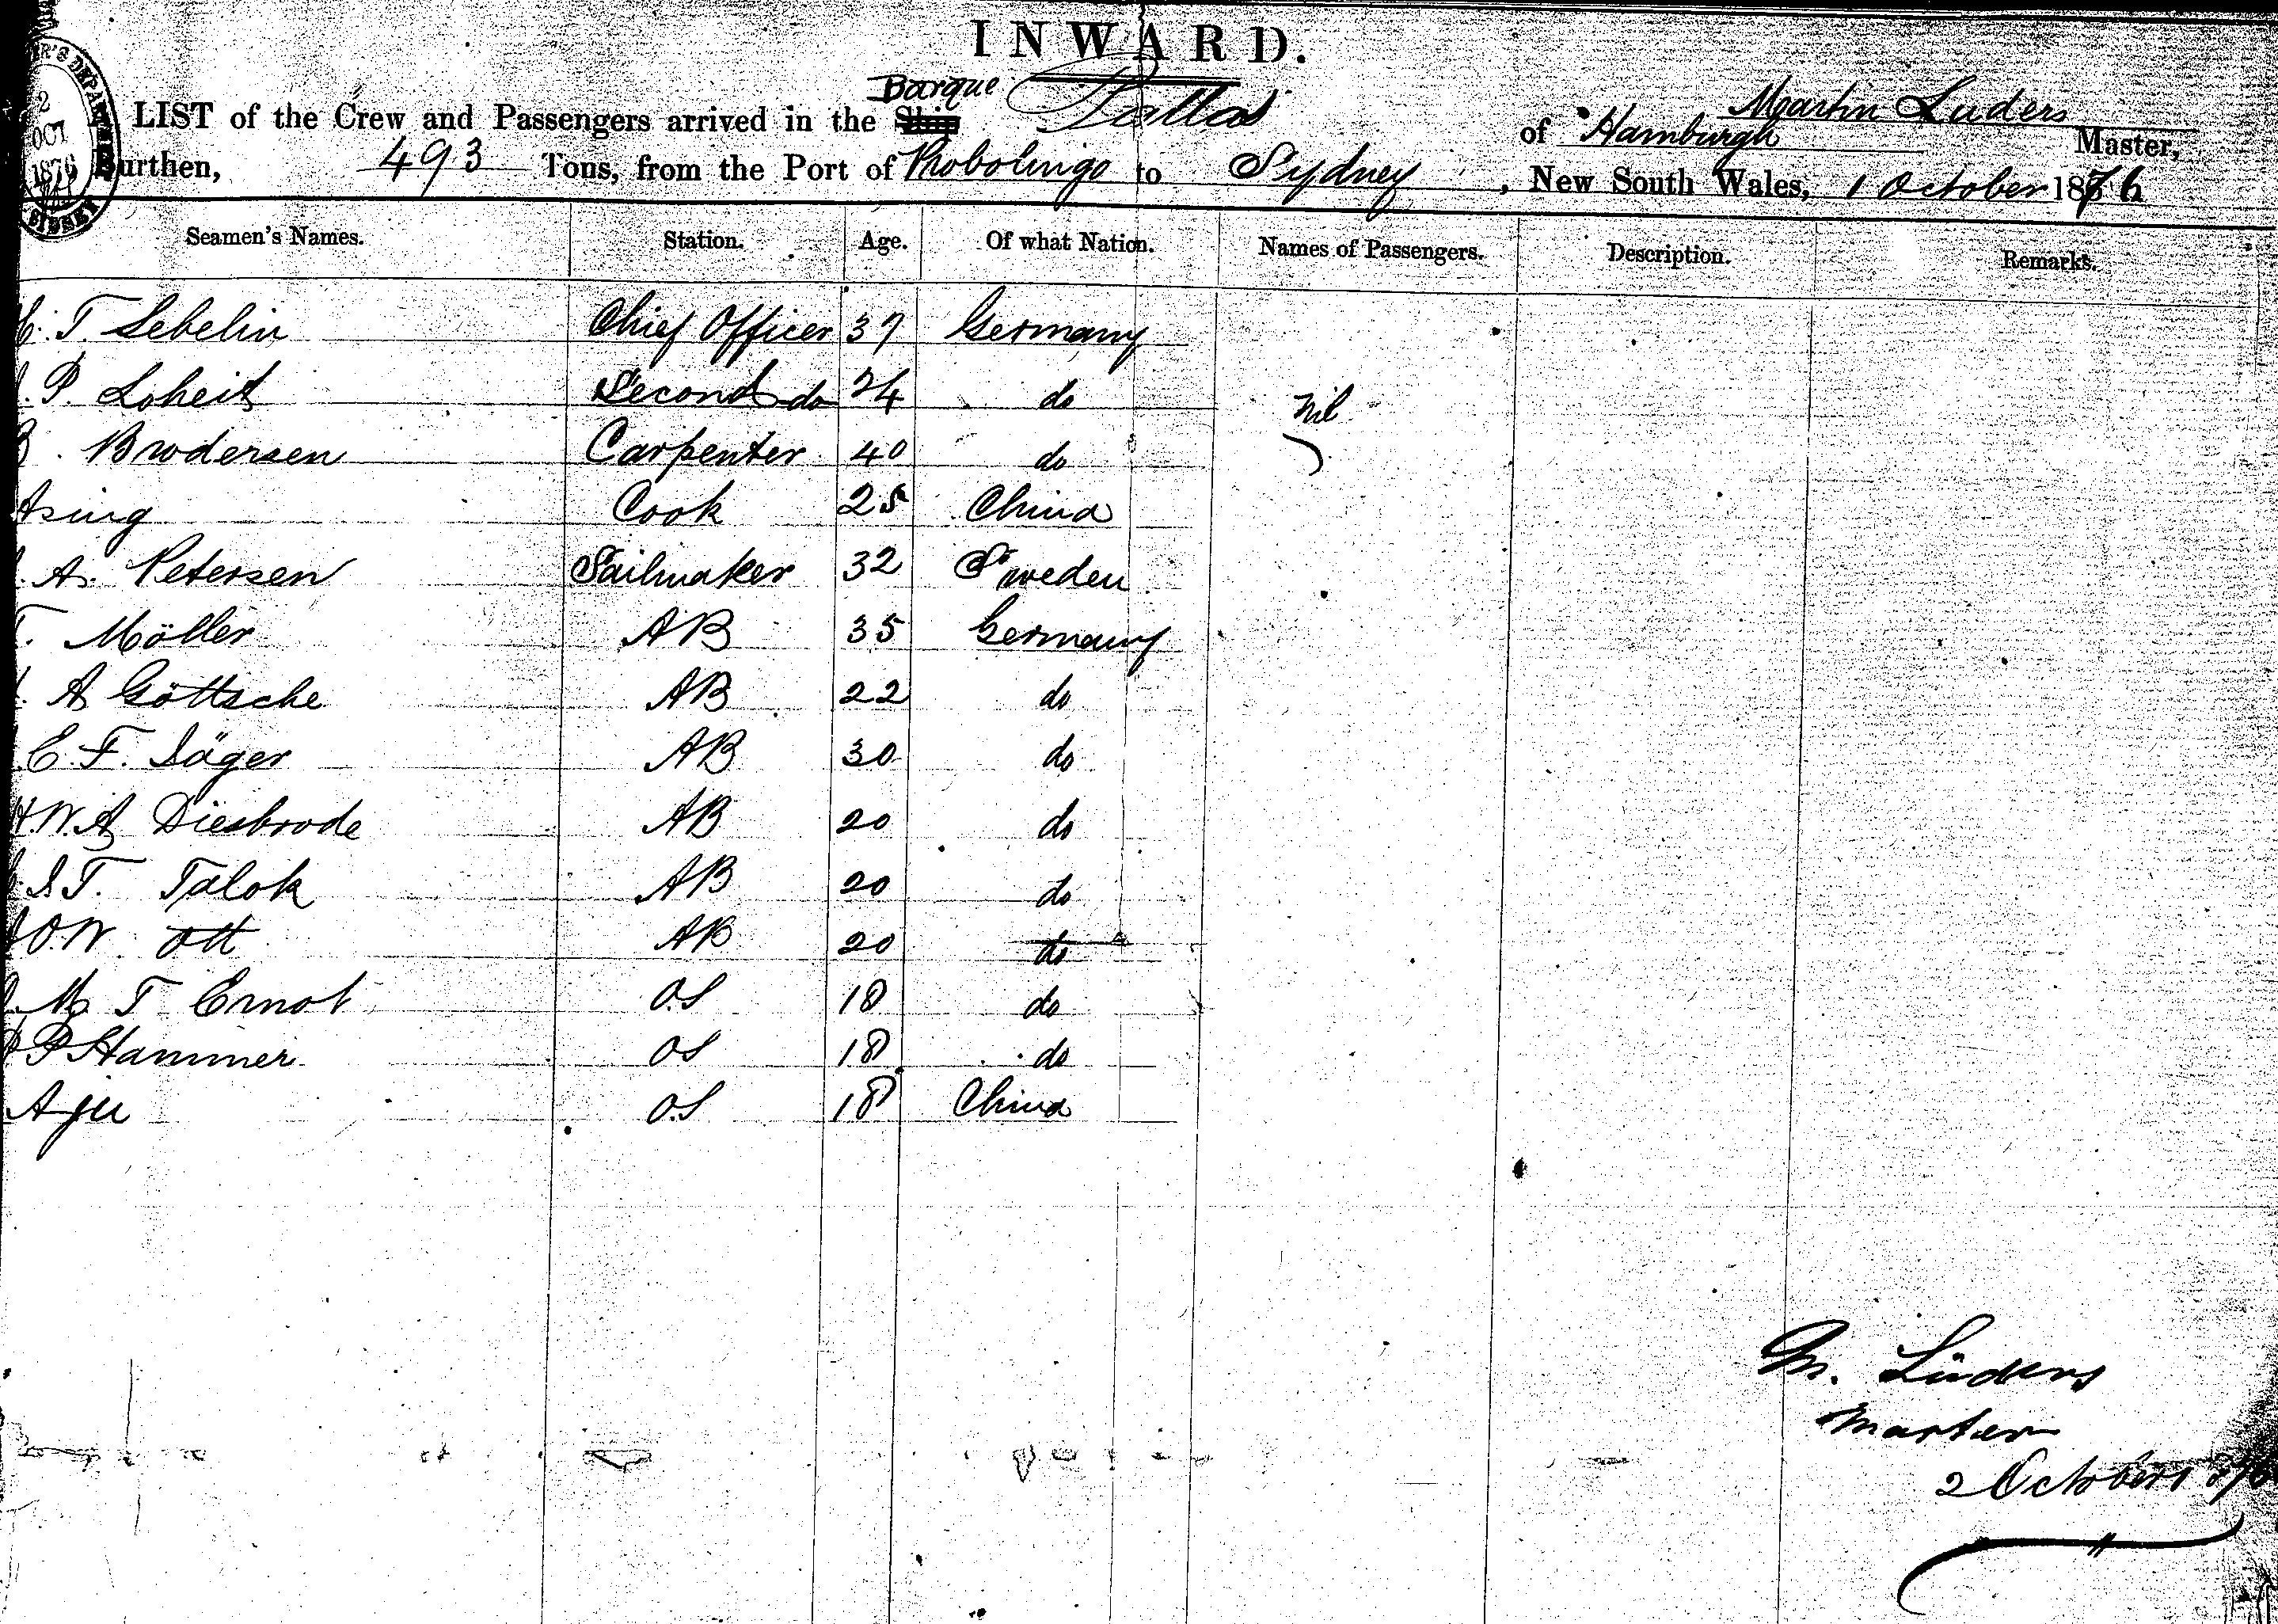 INWARD.
LIST of the Crew and Passengers arrived in the Ship Barque Pallas of Hamburgh Martin Luders Master,
Burthen, 493 Tons, from the Port of Probolingo to Sydney, New South Wales, 1 October 1876
2
OCT
1876
Seamen's Names. Station. Age. Of what Nation. Names of Passengers. Description. Remarks.
T Sebelin Chief Officer 37 Germany
P. Loheit Second do 24 do Nil
B. Brodersen Carpenter 40 do
Asing Cook 25 China
A. Petersen Sailmaker 32 Sweden
T. Möller AB 35 Germany
A Göttsche AB 22 do
E. F. Jäger AB 30 do
H.W.A Diesbrode AB 20 do
J T. Talok AB 20 do
O.W. Ott AB 20 do
M T Ernst O.S 18 do
P Hammer OS 18 do
Aju O.S 18 China
M. Lüders
Master
2 October 1876